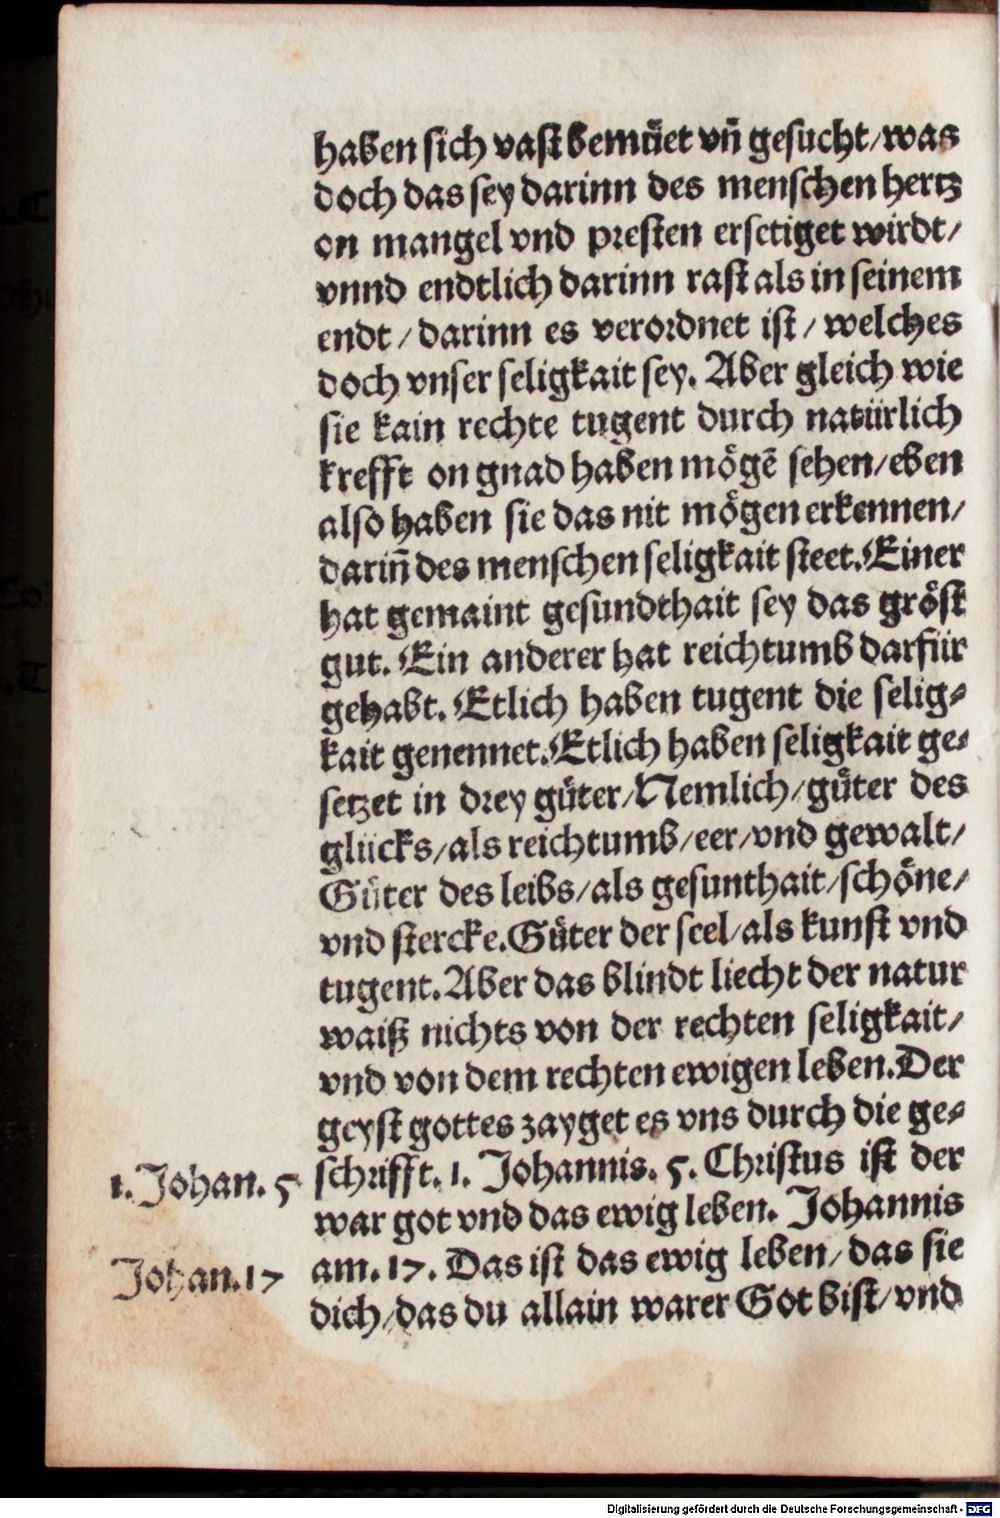 haben sich vast bemüet vñ gesucht/was
doch das sey darinn des menschen hertz
on mangel vnd presten ersetiget wirdt/
vnnd endtlich darinn rast als in seinem
endt/darinn es verordnet ist/welches
doch vnser seligkait sey. Aber gleich wie
sie kain rechte tugent durch natürlich
krefft on gnad haben mögẽ sehen/eben
also haben sie das nit mögen erkennen/
dariñ des menschen seligkait steet. Einer
hat gemaint gesundthait sey das gröst
gut. Ein anderer hat reichtumb darfür
gehabt. Etlich haben tugent die selig⸗
kait genennet. Etlich haben seligkait ge⸗
setzet in drey güter/Nemlich/güter des
glücks/als reichtumb/eer/vnd gewalt/
Güter des leibs/als gesunthait/schöne/
vnd stercke. Güter der seel/als kunst vnd
tugent. Aber das blindt liecht der natur
waiß nichts von der rechten seligkait/
vnd von dem rechten ewigen leben. Der
geyst gottes zayget es vns durch die ge⸗
1. Johan. 5 schrifft. 1. Johannis. 5. Christus ist der
war got vnd das ewig leben. Johannis
Johan. 17 am. 17. Das ist das ewig leben/das sie
dich/das du allain warer Got bist/vnd
Digitalisierung gefördert durch die Deutsche Forschungsgemeinschaft - DFG